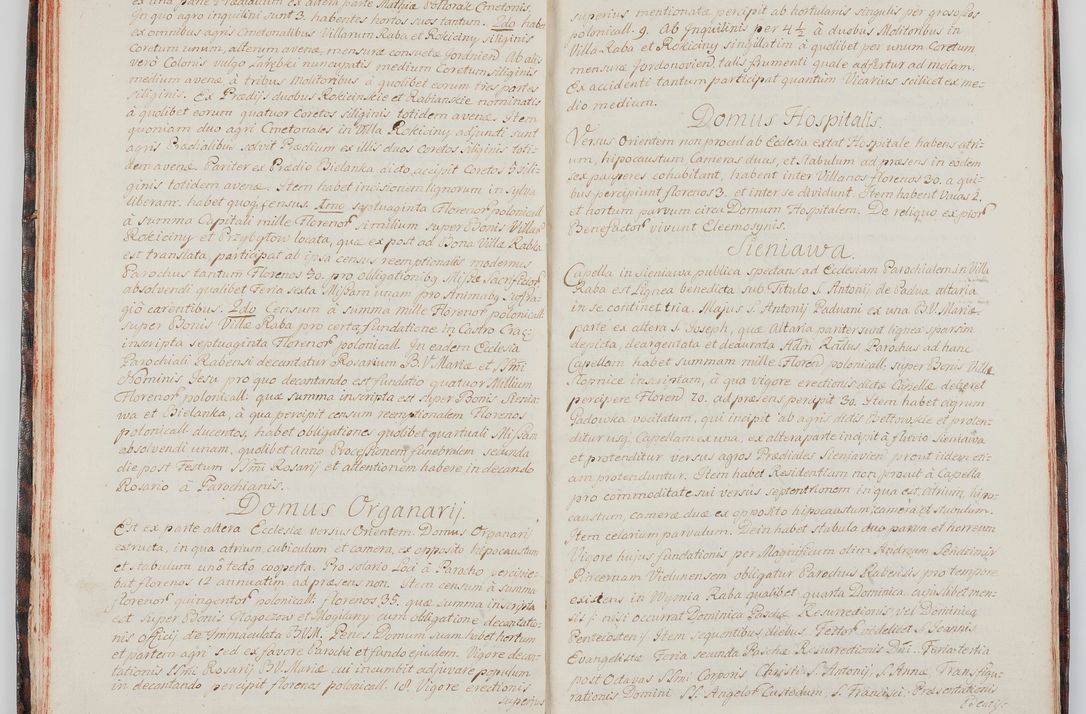 ex una parte Prædialium ex altera parte Mathiæ Cmetonis.
In quo agro inquilini sunt 3. habentes hortos suos tantum. 2do habe
ex omnibus agris Cmetonalibus Villarum Raba et Rokiciny siliginis
Coretum unum, alterum avenæ, mensuræ consuetæ Jordnien Ab alijs
verò Colonis vulgo Zarębki nuncupatis medium Coretum siliginis
medium avenæ à tribus Molitoribus à quolibet eorum tres partes
siliginis. Ex Prædijs duobus Rokicinskie et Rabianskie nominatis
à quolibet eorum quatuor Coretos siliginis totidem avenæ. Item
quoniam duo agri Cmetonales in Villa Rokiciny adjuncti sunt
agris Prædialibus solvit Prædium ex illis duos Coretos siliginis toti-
dem avenæ. Pariter ex Prædio Bielanka dicto, accipit Coretos 5 sili-
ginis totidem avenæ. Item habet incisionem lignorum in sylva
liberam. habet quoq; census. Imo septuaginta Florenor polonicall
à summa Capitali mille Florenor similium super Bonis Villar
Rokiciny et Przybytow locata, quæ ex post ad Bona Villæ Rabka
est translata, participat ab ipsa census reemptionalis modernus
Parochus tantum Florenos 30. pro obligationibq Missæ Sacrificior
absolvendi qualibet Feria sexta Missam unam pro Animabq suffra
gio carentibus. 2do Censum à summa mille Florenor polonicall
super Bonis Villæ Raba pro certa fundatione in Castro Crac:
inscripta septuaginta Florenor polonicall. In eadem Ecclesia
Parochiali Rabensi decantatur Rosarium B. V. Mariæ et SSmi
Nominis Jesu pro quo decantando est fundatio quatuor Millium
Florenor polonicall. quæ summa inscripta est super Bonis Sienia-
wa et Bielanka, à qua percipit censum reemptionalem Florenos
polonicall ducentos, habet obligationes quolibet quartuali Missam
absolvendi unam, quolibet Anno Processionem funebralem secunda
die post Festum SSmi Rosarij et attentionem habere in decando
Rosario à Parochianis.
Domus Organarij.
Est ex parte altera Ecclesiæ versus Orientem. Domus Organarij
extructa, in qua atrium, cubiculum et camera, ex opposito hipocaustum
et stabulum uno tecto cooperta. Pro solario Loci à Parocho percipie-
bat florenos 12 annuatim, ad præsens non. Item censum à summa
florenor quingentor polonicall: florenos 35. quæ summa inscripta
est super Bonis Glogoczow et Mogilany cum obligatione decantatio-
nis Officij de Immaculata BVM. Penes Domum suam habet hortum
et partem agri sed ex favore Parochi et fundo ejusdem. Vigore decan-
tationis SSmi Rosarij B.V. Mariæ cui incumbit adjuvare populum
in decantando percipit florenos polonicall. 18. Vigore erectionis
superius
superius mentionatæ percipit ab hortulanis singulis per grossos
polonicall. 9. Ab Ynquilinis per 4½ à duobus Molitoribus in
Villa Raba et Rokiciny singillatim à quolibet per unum Coretum
mensuræ Jordonovien talis frumenti quale adfertur ad molam.
Ex accidenti tantum participat quantum Vicarius scilicet ex me-
dio medium.
Domus Hospitalis.
Versus Orientem non procul ab Ecclesia extat Hospitale habens atri-
um, hipocaustum Cameras duas, et stabulum ad præsens in eodem
sex pauperes cohabitant, habent inter Villanos florenos 30. a qui-
bus percipiunt florenos 3. et inter se dividunt. Item habent Vacas 2.
et hortum parvum circa Domum Hospitalem. De reliquo ex pior
Benefactor vivunt Eleemosynis.
Sieniawa.
Capella in Sieniawa publica spectans ad Ecclesiam Parochialem in Villa
Raba est Lignea benedicta sub Titulo S. Antonij de Padua altaria
in se continet tria. Majus S. Antonij Paduani ex una B.V. Mariæ
parte ex altera S. Joseph, quæ Altaria pariter sunt lignea sparsim
depicta, deargentata et deaurata Adm Rndus Parochus ad hanc
Capellam habet summam mille Floren polonicall; super Bonis Villæ
Stopnice inscriptam, à qua vigore erectionis dictæ Capellæ deberet
percipere Floren 70. ad præsens percipit 30. Item habet agrum
Gadowka vocitatum, qui incipit ab agris dictis Bettowskie et proten-
ditur usq; Capellam ex una, ex altera parte incipit à fluvio Sieniawa
et protenditur versus agros Prædiales Sieniavien prout iidem eti-
am protenduntur. Item habet Residentiam non procul à Capella
pro commoditate sui versus septentrionem in qua est atrium, hipo-
caustum, cameræ duæ ex opposito hipocaustum, camera et stubulum.
Item celarium parvulum. Dein habet stabula duo parva et horreum
Vigore hujus fundationis per Magnificum olim Andream Sendzimir
Pincernam Vielunensem obligatur Parochus Rabensis pro tempore
existens in Wyznia Raba qualibet quarta Dominica cujuslibet men-
sis /: nisi occurrat Dominica Paschæ Resurrectionis vel Dominica
Pentecosten:/ Item sequentibus diebus Festor videlicet S. Joannis
Evangelistæ Feria secunda Paschæ Resurrectionis Dni. Feria tertia
post Octavas SSmi Corporis Christi S. Antonij, S. Annæ, Transfigu-
rationis Domini SS. Angelor Custodum, S. Francisci, Præsentationis